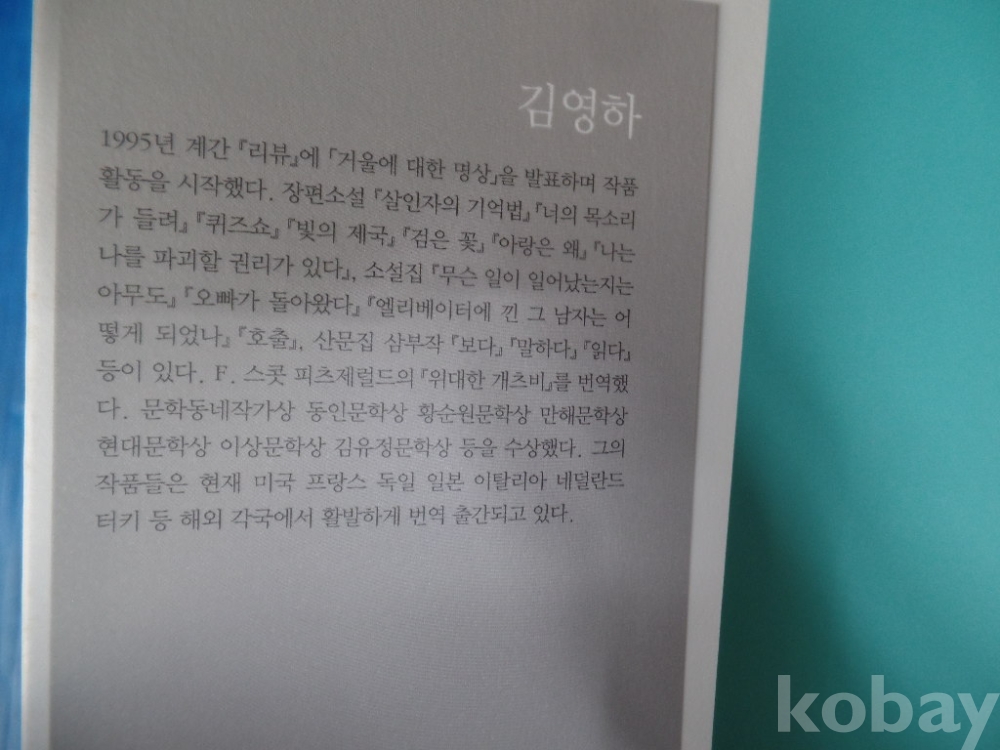 김영하
1995년 계간 『리뷰』에 「거울에 대한 명상」을 발표하며 작품
활동을 시작했다. 장편소설 『살인자의 기억법』 『너의 목소리
가 들려』 『퀴즈쇼』 『빛의 제국』 『검은 꽃』 『아랑은 왜』 『나는
나를 파괴할 권리가 있다』, 소설집 『무슨 일이 일어났는지는
아무도』 『오빠가 돌아왔다』 『엘리베이터에 낀 그 남자는 어
떻게 되었나』 『호출』, 산문집 삼부작 『보다』 『말하다』 『읽다』
등이 있다. F. 스콧 피츠제럴드의 『위대한 개츠비』를 번역했
다. 문학동네작가상 동인문학상 황순원문학상 만해문학상
현대문학상 이상문학상 김유정문학상 등을 수상했다. 그의
작품들은 현재 미국 프랑스 독일 일본 이탈리아 네덜란드
터키 등 해외 각국에서 활발하게 번역 출간되고 있다.
kobay